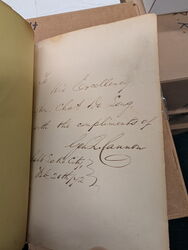 To
His Excellency
Chas. De Long,
with the compliments of
Geo. Q. Cannon
Salt Lake City,
Feb. 20th,